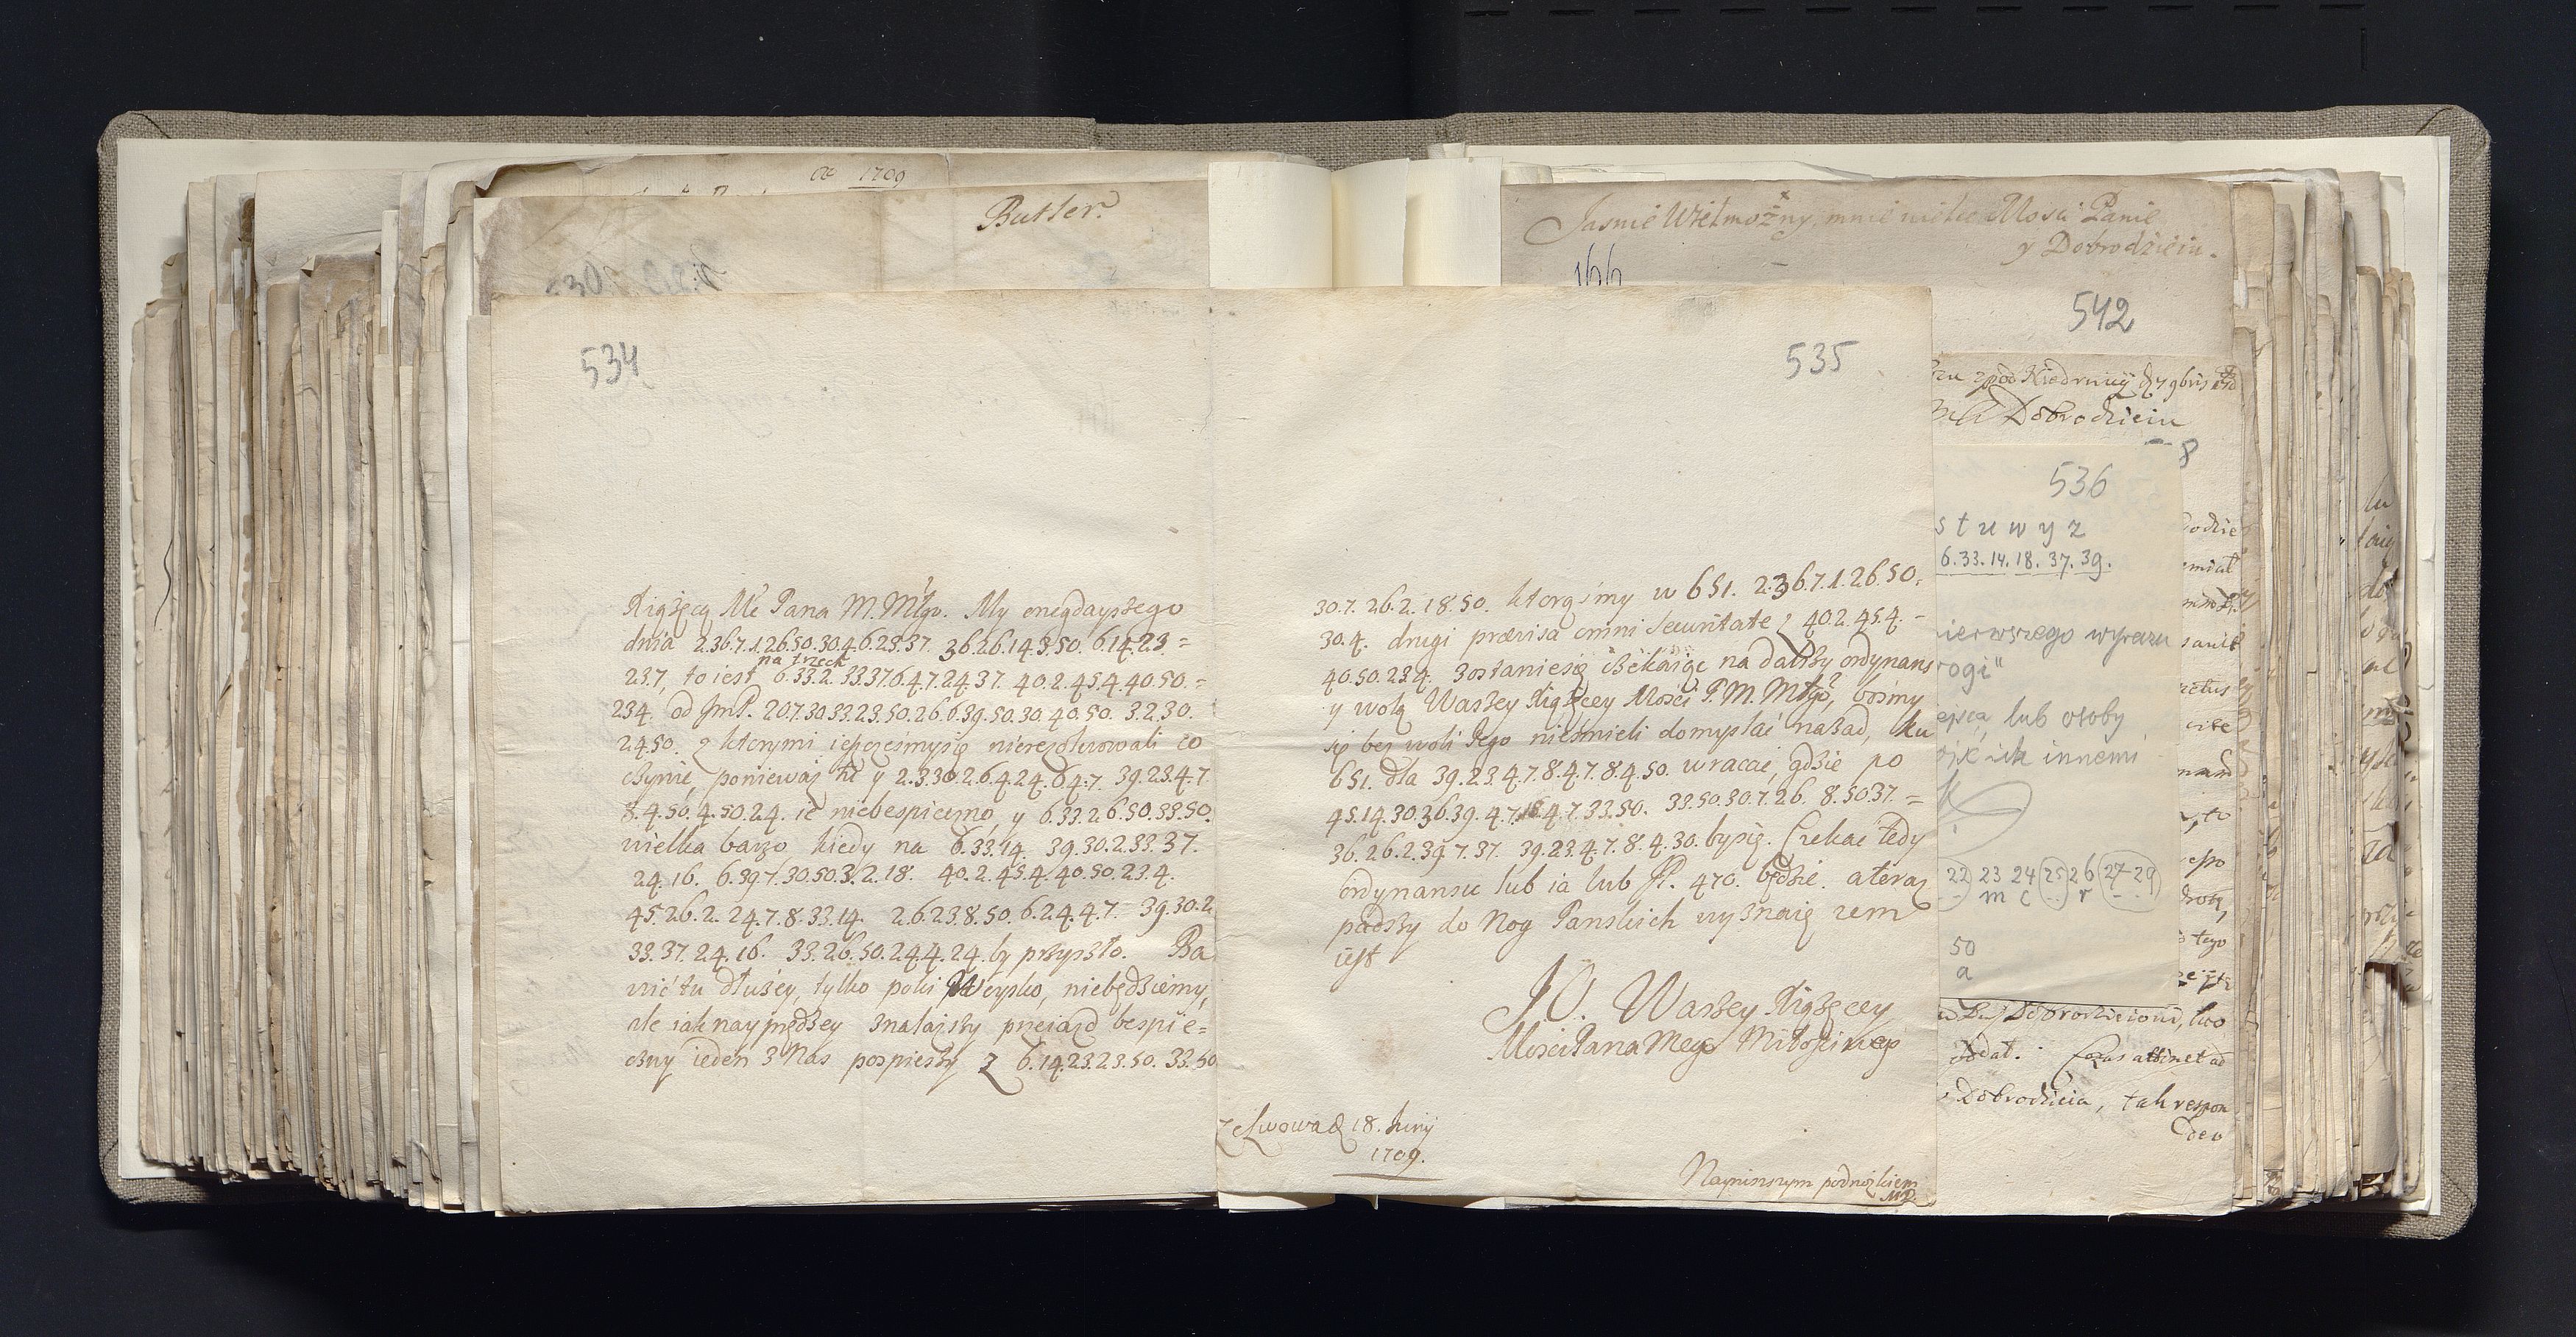 A͞o 1709
Butler.
534
Xiążęcą Mć Pana M. Młgo. My onegdayszego
dnia 2.36.7.1.26.50.30.4.6.23.37. 36.26.14.3.50. 6.14.23.=
23.7, to iest na trzech 6.33.2.33.37.6.4.7.24.37. 40.2.45.4.40.50.=
23.4. od JmP. 20.7.30.33.23.50.26.6.39.50.30.40.50. 3.2.30.
2.4.50. z ktorymi ieszcześmysię nierezolwowali co
czynić, poniewaz tu y 2.3.30.2.6.4.24.6.4.7. 39.23.4.7
8.4.50.4.50.24. ie niebespieczno, y 6.33.26.50.33.50.
wielka barzo, kiedy na 6.33.14. 39.30.2.33.37.
24.16. 6.39.7.30.50.3.2.18. 40.2.45.4.40.50.23.4.
45.26.2.24.7.8.33.14. 26.2.38.50.6.2.4.4.7. 39.30.2
33.37.24.16. 33.26.50.24.4.24. by przyszło. Ba
wić tu dłużey, tylko poki Woysko, niebędziemy,
ale iak nayprędzey znalazszy przeiazd bespie=
czny ieden z Nas pospieszy z 6.14.23.23.50.33.50
535
30.7.26.2.18.50. ktorąśmy w 651. 2.36.7.1.26.50.=
30.4. drugi prævisa omni securitate z 40.2.45.4.=
40.50.23.4. zostaniesię czekaiąc na dalszy ordynans
y wolą Waszey Xiążęcey Mości P. M. Młgo, bosmy
się bez woli Jego nieśmieli domyslać nazad, ku
651. dla 39.23.4.7.8.4.7.8.4.50. wracać, gdzie po
45.14.30.36.39.4.7.18.4.7.33.50. 33.50.30.7.26. 8.50.37.=
36.26.2.39.7.37. 39.23.4.7.8.4.30. bysię. Czekać tedy
ordynansu lub ia lub JP. 470. będzie. ateraz
padszy do Nog Panskich wyznaię żem
iest
J. O. Waszey Xiążęcey
Mości Pana Mego Miłościwego
Ze Lwowa d 18. Junij
1709.
Nayninszym podnożkiem
MP.
Jasnie Wielmożny, mnie wielce Mosci Panie
y Dobrodzieiu.
166
542
Dobrodzieiu
8
536
s t u w y z
6. 33. 14. 18. 37. 39.
ierwszego wyrazu
rogi"
ejsca, lub osoby
ich innemi
22 23 24 25 26 27-29
m c r
50
a
Dobrodzieia, tak respon
den